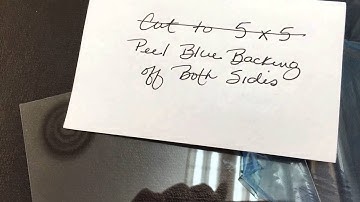 Cut to 5 x 5
Peel Blue Backing
off Both Sides